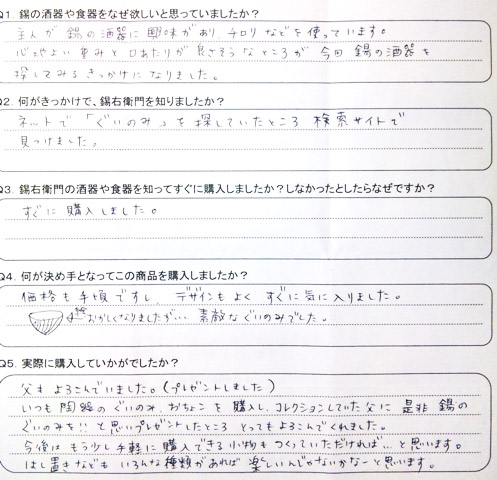 Q1. 錫の酒器や食器をなぜ欲しいと思っていましたか?
主人が 錫の酒器に 興味があり、チロリ などを 使っています。
心地よい 重みと 口あたりが 良さそうな ところが 今回 錫の酒器を
探してみる きっかけに なりました。
Q2. 何がきっかけで、錫右衛門を知りましたか?
ネットで 「ぐいのみ」を 探していたところ 検索サイトで
見つけました。
Q3. 錫右衛門の酒器や食器を知ってすぐに購入しましたか?しなかったとしたらなぜですか?
すぐに 購入しました。
Q4. 何が決め手となってこの商品を購入しましたか?
価格も 手頃ですし、デザインもよく すぐに 気に入りました。
絵おかしくなりましたが… 素敵なぐいのみでした。
Q5. 実際に購入していかがでしたか?
父も よろこんでいました。(プレゼントしました)
いつも 陶器の ぐいのみ、おちょこを 購入し、コレクションしていた父に 是非 錫の
ぐいのみを!! と思いプレゼントしたところ とってもよろこんでくれました。
今後は もう少し 手軽に 購入できる 小物も つくっていただければ…と思います。
はし置きなども いろんな種類があれば 楽しいんじゃないかなーと思います。